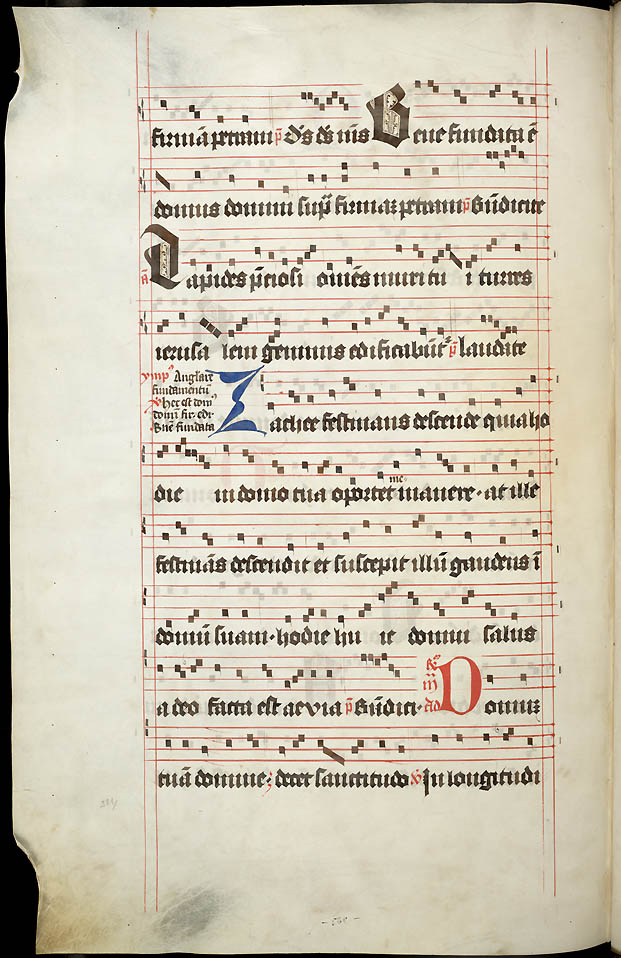 firmā petram p̄ D's ds m̄s Bene fundata ē
domus domini sup̄ firmaꝫ petram p̄ Bn̄dicite
ā Lapides p̄ciosi om̄es muri tu i turres
ierusa lem gemmis edificabūt᷑ p̄ laudate
ymp⁹ Anglare
fundamentū
℣ hec est dom⁹
domī fir. edi.
Bn̄e fundata
Zachee festinans descende quia ho
die in domo tua oportet me manere · at ille
festinās descendit et suscepit illū gaudens ī
domū suam · hodie hu ic domui salus
a deo facta est ae v i a p̄ Bn̄dict⁹ Domuꝫ
tuā domine · decet sanctitudo ℣ In longitudi